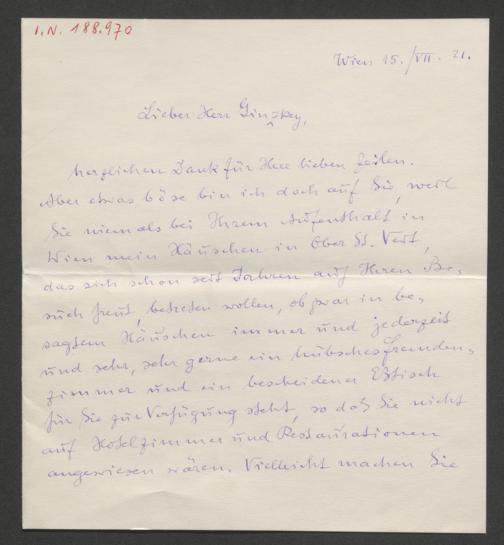 I.N. 188.970
Wien 15./VII. 21.
Lieber Herr Ginzkey,
herzlichen Dank für Ihre lieben Zeilen.
Aber etwas böse bin ich doch auf Sie, weil
Sie niemals bei Ihrem Aufenthalt in
Wien mein Häuschen in Ober St. Veit,
das sich schon seit Jahren auf Ihren Be-
such freut, betreten wollen, obzwar in be-
sagtem Häuschen immer und jederzeit
und sehr, sehr gerne ein hübsches Fremden-
zimmer und ein bescheidener Eßtisch
für Sie zur Verfügung steht, so daß Sie nicht
auf Hotelzimmer und Restaurationen
angewiesen wären. Vielleicht machen Sie